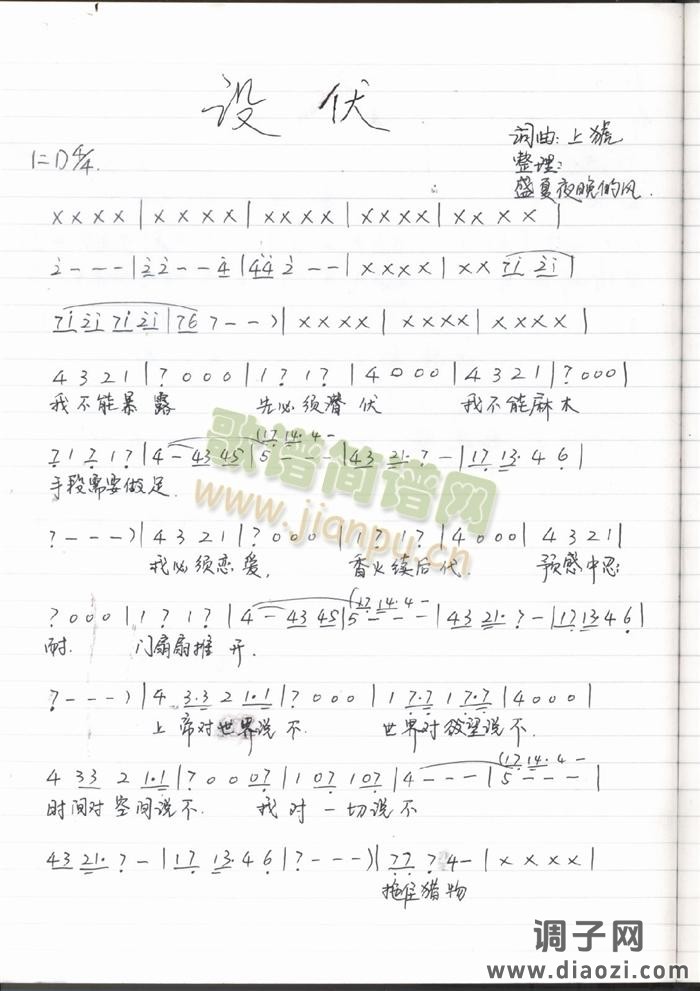 设 伏
词曲:上猇
1=D 4/4.
整理:
盛夏夜晚的风.
x x x x | x x x x | x x x x | x x x x | x x x x |
2 - - - | 2 2 - - 4 | 4 4 2 - - | x x x x | x x 7 1 2 1 |
7 1 2 1 7 1 2 1 | 7 6 7 - - ) | x x x x | x x x x | x x x x |
4 3 2 1 | 7 0 0 0 | 1 7 1 7 | 4 0 0 0 | 4 3 2 1 | 7 0 0 0 |
我不能暴露 先必须潜伏 我不能麻木
(17 14· 4 -
7 1 7 1 7 | 4 - 43 45 | 5 - - - | 43 21· 7 - | 17 13· 4 6 |
手段需要做足
7 - - - ) | 4 3 2 1 | 7 0 0 0 | 1 7 1 7 | 4 0 0 0 | 4 3 2 1 |
我必须恋爱, 香火续后代. 预感中忍
(17 14· 4 -
7 0 0 0 | 1 7 1 7 | 4 - 43 45 | 5 - - - | 43 21· 7 - | 17 13· 4 6 |
耐. 门扇扇推开.
7 - - - ) | 4 3·3 2 1·1 | 7 0 0 0 | 1 7·7 1 7·7 | 4 0 0 0 |
上帝对世界说不. 世界对欲望说不.
(17 14· 4 -
4 33 2 1·1 | 7 0 0 07 | 1 07 1 07 | 4 - - - | 5 - - - |
时间对空间说不. 我对一切说不
43 21· 7 - | 17 13· 4 6 | 7 - - - ) | 77 7 4 - | x x x x |
拖住猎物
歌谱简谱网
www.jianpu.cn
调子网
www.diaozi.com